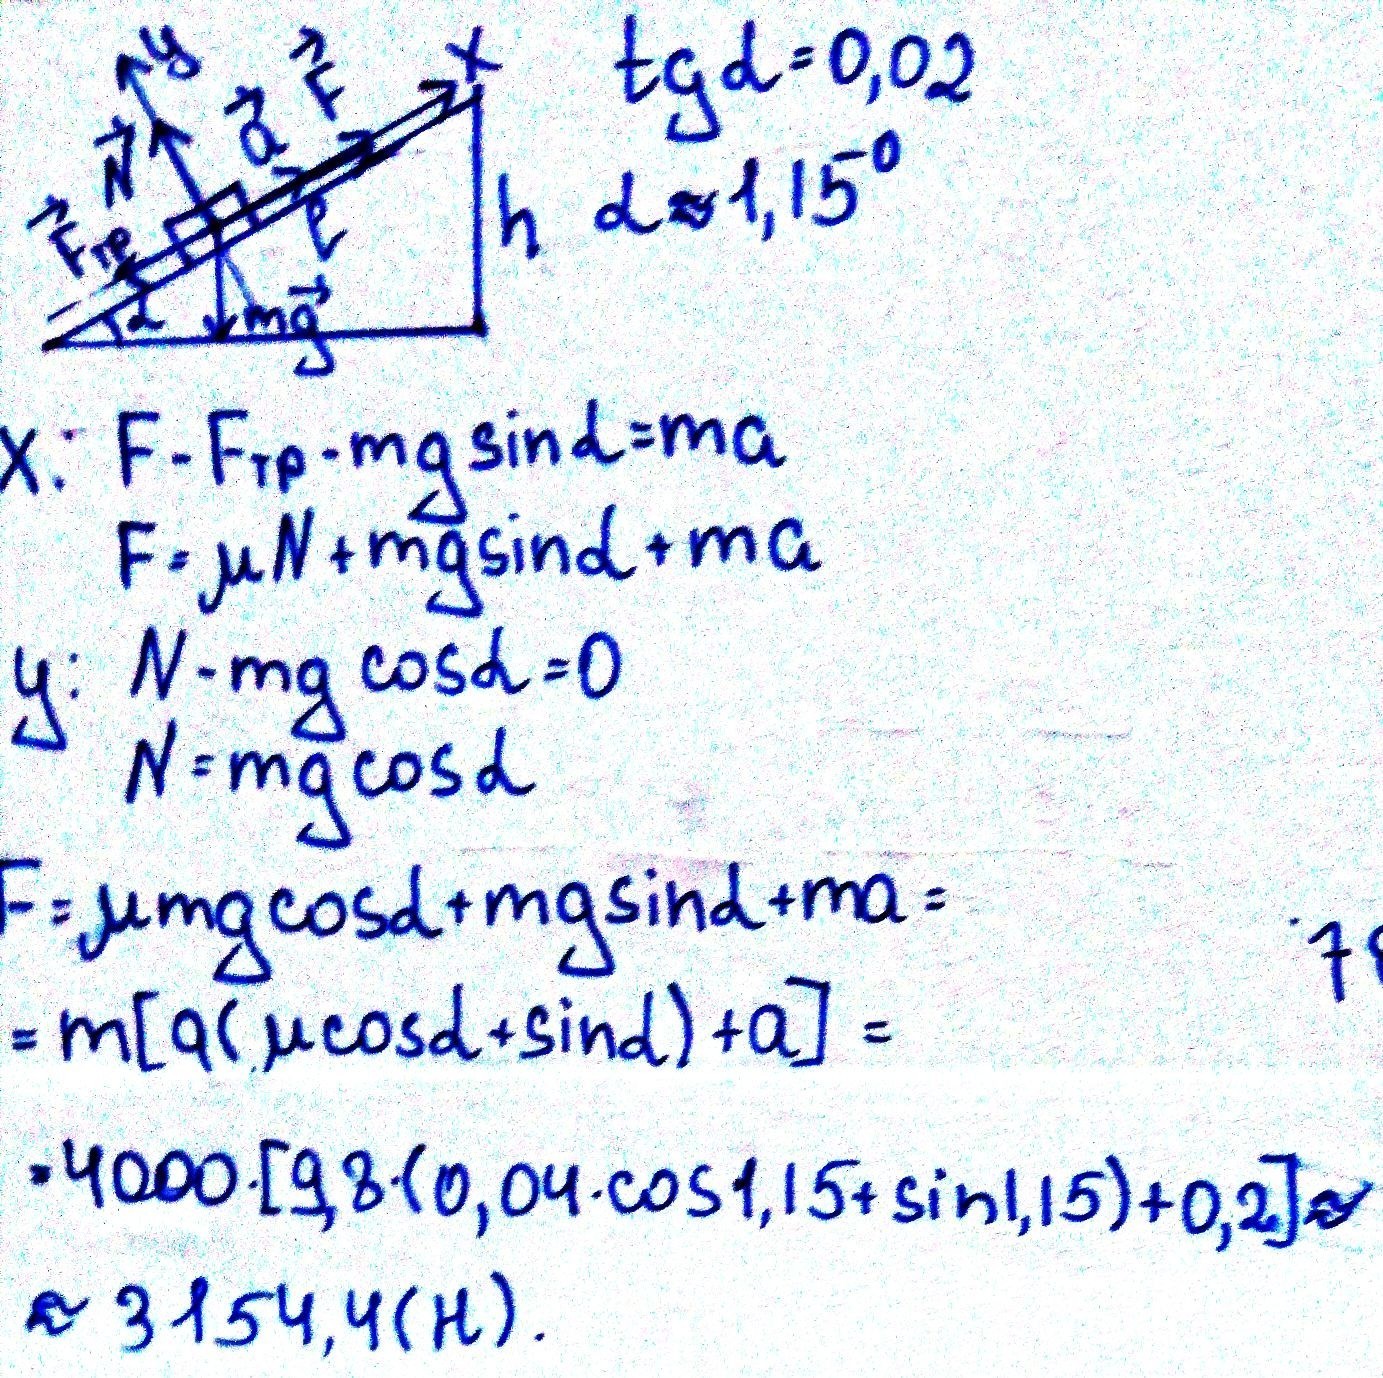 y
x
F
a
N
Fтр
l
h
α
mg
tgα=0,02
α≈1,15°
x: F-Fтр-mgsinα=ma
F=μN+mgsinα+ma
y: N-mgcosα=0
N=mgcosα
F=μmgcosα+mgsinα+ma=
=m[g(μcosα+sinα)+a]=
=4000·[9,8·(0,04·cos1,15+sin1,15)+0,2]≈
≈3154,4(Н).